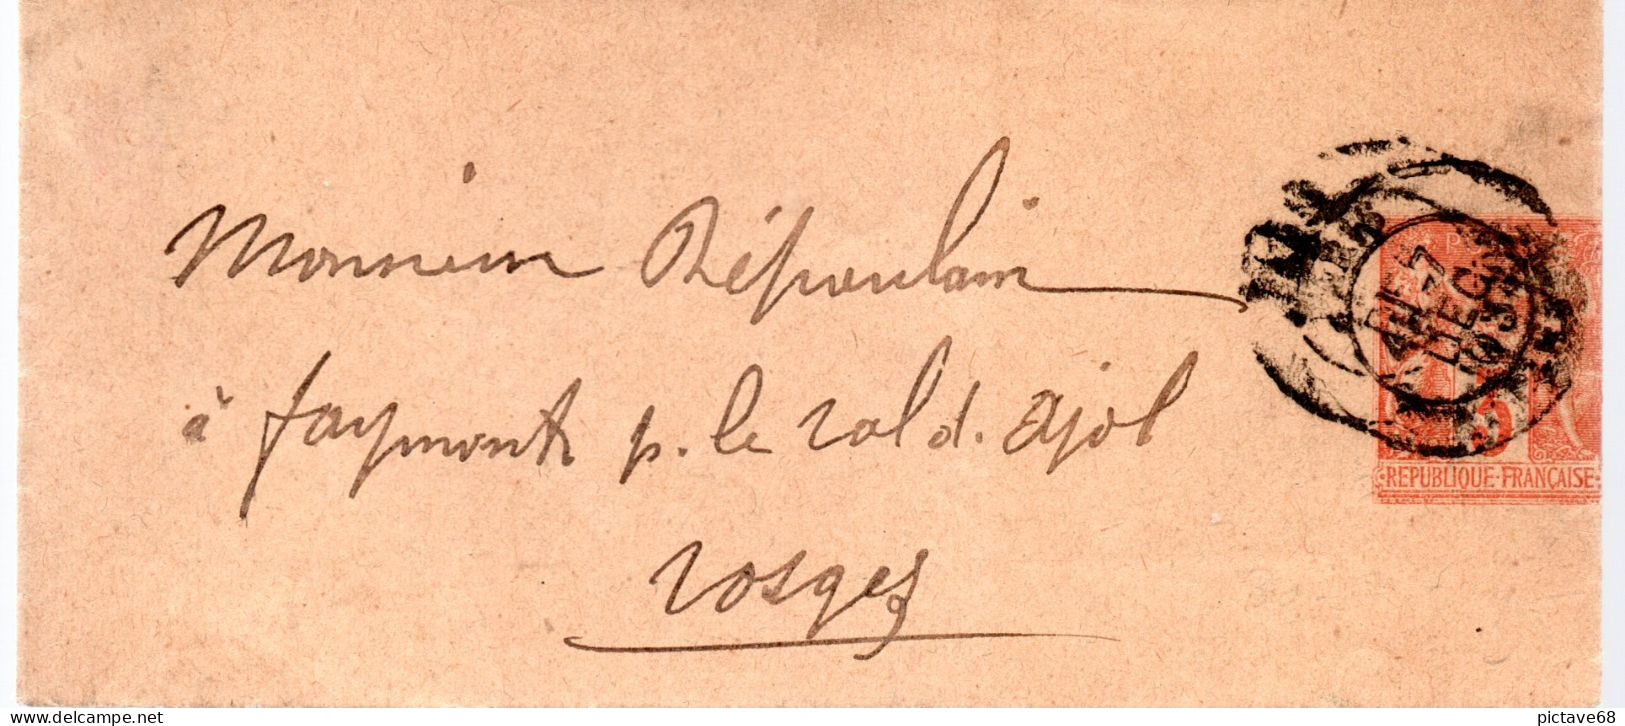 Monsieur Répoulain
à faymont p. le val d. ajol
Vosges
REPUBLIQUE·FRANÇAISE
delcampe.net
pictave68